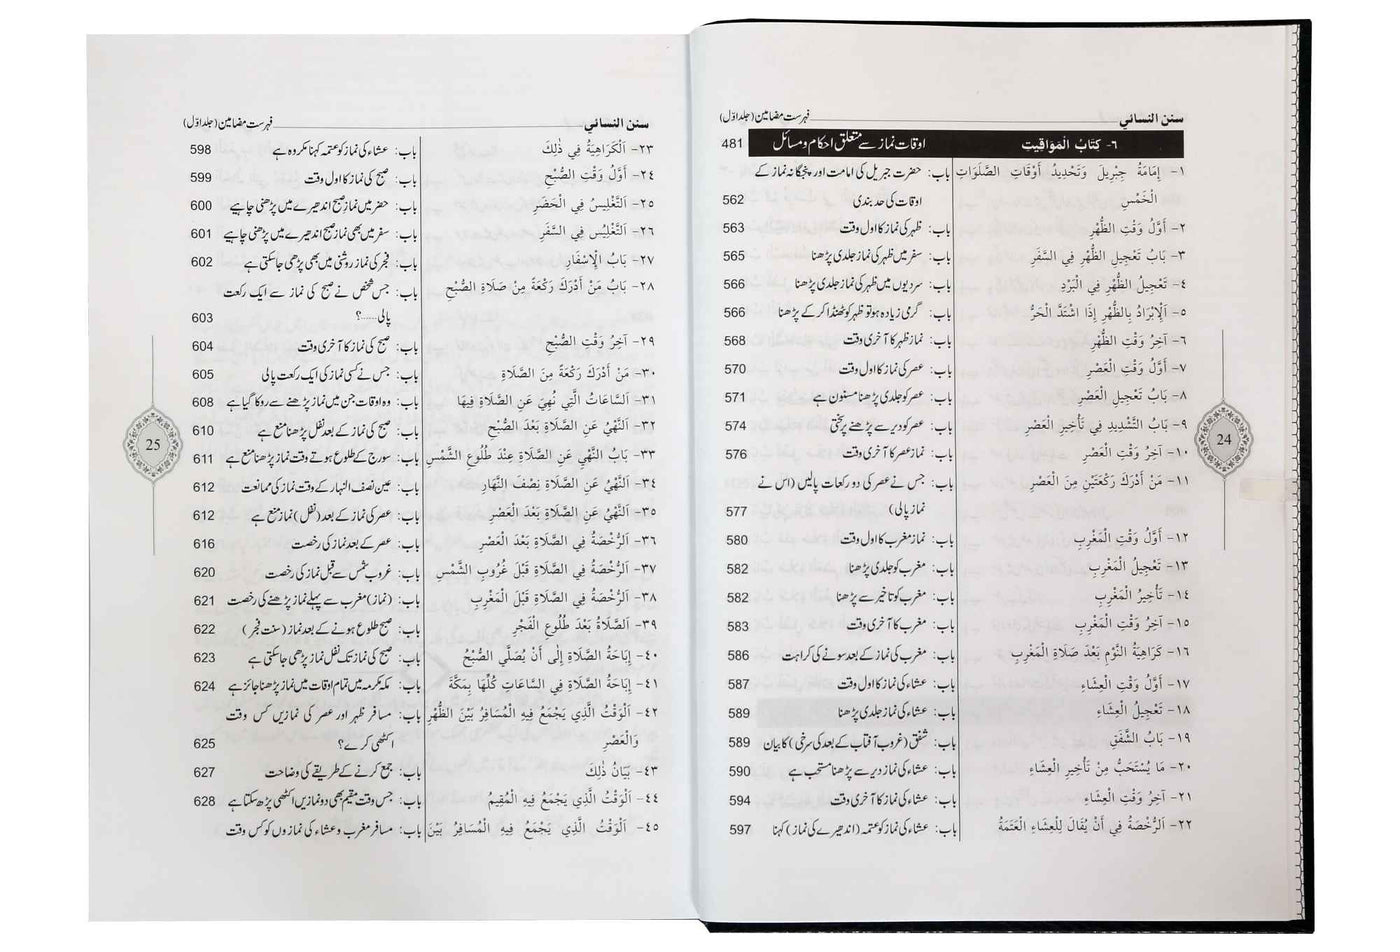 سنن النسائي فہرست مضامین (جلد اوّل)
٦- كِتَابُ الْمَوَاقِيتِ اوقات نماز سے متعلق احکام و مسائل 481
١- إِمَامَةُ جِبْرِيلَ وَتَحْدِيدُ أَوْقَاتِ الصَّلَوَاتِ باب: حضرت جبریل کی امامت اور پنجگانہ نماز کے
الْخَمْسِ اوقات کی حد بندی 562
٢- أَوَّلُ وَقْتِ الظُّهْرِ باب: ظہر کی نماز کا اول وقت 563
٣- بَابُ تَعْجِيلِ الظُّهْرِ فِي السَّفَرِ باب: سفر میں ظہر کی نماز جلدی پڑھنا 565
٤- تَعْجِيلُ الظُّهْرِ فِي الْبَرْدِ باب: سردیوں میں ظہر کی نماز جلدی پڑھنا 566
٥- اَلْإِبْرَادُ بِالظُّهْرِ إِذَا اشْتَدَّ الْحَرُّ باب: گرمی زیادہ ہو تو ظہر کو ٹھنڈا کر کے پڑھنا 566
٦- آخِرُ وَقْتِ الظُّهْرِ باب: نماز ظہر کا آخری وقت 568
٧- أَوَّلُ وَقْتِ الْعَصْرِ باب: عصر کی نماز کا اول وقت 570
٨- بَابُ تَعْجِيلِ الْعَصْرِ باب: عصر کو جلدی پڑھنا مسنون ہے 571
٩- بَابُ التَّشْدِيدِ فِي تَأْخِيرِ الْعَصْرِ باب: عصر کو دیر سے پڑھنے پر سختی 574
١٠- آخِرُ وَقْتِ الْعَصْرِ باب: نماز عصر کا آخری وقت 576
١١- مَنْ أَدْرَكَ رَكْعَتَيْنِ مِنَ الْعَصْرِ باب: جس نے عصر کی دو رکعات پالیں (اس نے
نماز پالی) 577
١٢- أَوَّلُ وَقْتِ الْمَغْرِبِ باب: نماز مغرب کا اول وقت 580
١٣- تَعْجِيلُ الْمَغْرِبِ باب: مغرب کو جلدی پڑھنا 582
١٤- تَأْخِيرُ الْمَغْرِبِ باب: مغرب کو تاخیر سے پڑھنا 582
١٥- آخِرُ وَقْتِ الْمَغْرِبِ باب: مغرب کا آخری وقت 583
١٦- كَرَاهِيَةُ النَّوْمِ بَعْدَ صَلَاةِ الْمَغْرِبِ باب: مغرب کی نماز کے بعد سونے کی کراہت 586
١٧- أَوَّلُ وَقْتِ الْعِشَاءِ باب: عشاء کی نماز کا اول وقت 587
١٨- تَعْجِيلُ الْعِشَاءِ باب: عشاء کی نماز جلدی پڑھنا 589
١٩- بَابُ الشَّفَقِ باب: شفق (غروب آفتاب کے بعد کی سرخی) کا بیان 589
٢٠- مَا يُسْتَحَبُّ مِنْ تَأْخِيرِ الْعِشَاءِ باب: عشاء کی نماز دیر سے پڑھنا مستحب ہے 590
٢١- آخِرُ وَقْتِ الْعِشَاءِ باب: عشاء کی نماز کا آخری وقت 594
٢٢- اَلرُّخْصَةُ فِي أَنْ يُقَالَ لِلْعِشَاءِ الْعَتَمَةُ باب: عشاء کی نماز کو عتمہ (اندھیرے کی نماز) کہنا 597
24
سنن النسائي فہرست مضامین (جلد اوّل)
٢٣- اَلْكَرَاهِيَةُ فِي ذٰلِكَ باب: عشاء کی نماز کو عتمہ کہنا مکروہ ہے 598
٢٤- أَوَّلُ وَقْتِ الصُّبْحِ باب: صبح کی نماز کا اول وقت 599
٢٥- اَلتَّغْلِيسُ فِي الْحَضَرِ باب: حضر میں نماز صبح اندھیرے میں پڑھنی چاہیے 600
٢٦- اَلتَّغْلِيسُ فِي السَّفَرِ باب: سفر میں بھی نماز صبح اندھیرے میں پڑھنی چاہیے 601
٢٧- بَابُ الْإِسْفَارِ باب: فجر کی نماز روشنی میں بھی پڑھی جاسکتی ہے 602
٢٨- بَابُ مَنْ أَدْرَكَ رَكْعَةً مِنْ صَلَاةِ الصُّبْحِ باب: جس شخص نے صبح کی نماز سے ایک رکعت
پالی......؟ 603
٢٩- آخِرُ وَقْتِ الصُّبْحِ باب: صبح کی نماز کا آخری وقت 604
٣٠- مَنْ أَدْرَكَ رَكْعَةً مِنَ الصَّلَاةِ باب: جس نے کسی نماز کی ایک رکعت پالی 605
٣١- اَلسَّاعَاتُ الَّتِي نُهِيَ عَنِ الصَّلَاةِ فِيهَا باب: وہ اوقات جن میں نماز پڑھنے سے روکا گیا ہے 608
٣٢- اَلنَّهْيُ عَنِ الصَّلَاةِ بَعْدَ الصُّبْحِ باب: صبح کی نماز کے بعد نفل پڑھنا منع ہے 610
٣٣- بَابُ النَّهْيِ عَنِ الصَّلَاةِ عِنْدَ طُلُوعِ الشَّمْسِ باب: سورج کے طلوع ہوتے وقت نماز پڑھنا منع ہے 611
٣٤- اَلنَّهْيُ عَنِ الصَّلَاةِ نِصْفَ النَّهَارِ باب: عین نصف النہار کے وقت نماز کی ممانعت 612
٣٥- اَلنَّهْيُ عَنِ الصَّلَاةِ بَعْدَ الْعَصْرِ باب: عصر کے بعد (نفل) نماز منع ہے 612
٣٦- اَلرُّخْصَةُ فِي الصَّلَاةِ بَعْدَ الْعَصْرِ باب: عصر کے بعد نماز کی رخصت 616
٣٧- اَلرُّخْصَةُ فِي الصَّلَاةِ قَبْلَ غُرُوبِ الشَّمْسِ باب: غروب شمس سے قبل نماز کی رخصت 620
٣٨- اَلرُّخْصَةُ فِي الصَّلَاةِ قَبْلَ الْمَغْرِبِ باب: (نماز) مغرب سے پہلے نماز پڑھنے کی رخصت 621
٣٩- اَلصَّلَاةُ بَعْدَ طُلُوعِ الْفَجْرِ باب: صبح طلوع ہونے کے بعد نماز (سنت فجر) 622
٤٠- إِبَاحَةُ الصَّلَاةِ إِلَى أَنْ يُصَلَّي الصُّبْحُ باب: صبح کی نماز تک نفل نماز پڑھی جاسکتی ہے 623
٤١- إِبَاحَةُ الصَّلَاةِ فِي السَّاعَاتِ كُلِّهَا بِمَكَّةَ باب: مکہ مکرمہ میں تمام اوقات میں نماز پڑھنا جائز ہے 624
٤٢- اَلْوَقْتُ الَّذِي يَجْمَعُ فِيهِ الْمُسَافِرُ بَيْنَ الظُّهْرِ باب: مسافر ظہر اور عصر کی نمازیں کس وقت
وَالْعَصْرِ اکٹھی کرے؟ 625
٤٣- بَيَانُ ذٰلِكَ باب: جمع کرنے کے طریقے کی وضاحت 627
٤٤- اَلْوَقْتُ الَّذِي يَجْمَعُ فِيهِ الْمُقِيمُ باب: جس وقت مقیم بھی دو نمازیں اکٹھی پڑھ سکتا ہے 628
٤٥- اَلْوَقْتُ الَّذِي يَجْمَعُ فِيهِ الْمُسَافِرُ بَيْنَ باب: مسافر مغرب و عشاء کی نمازوں کو کس وقت
25